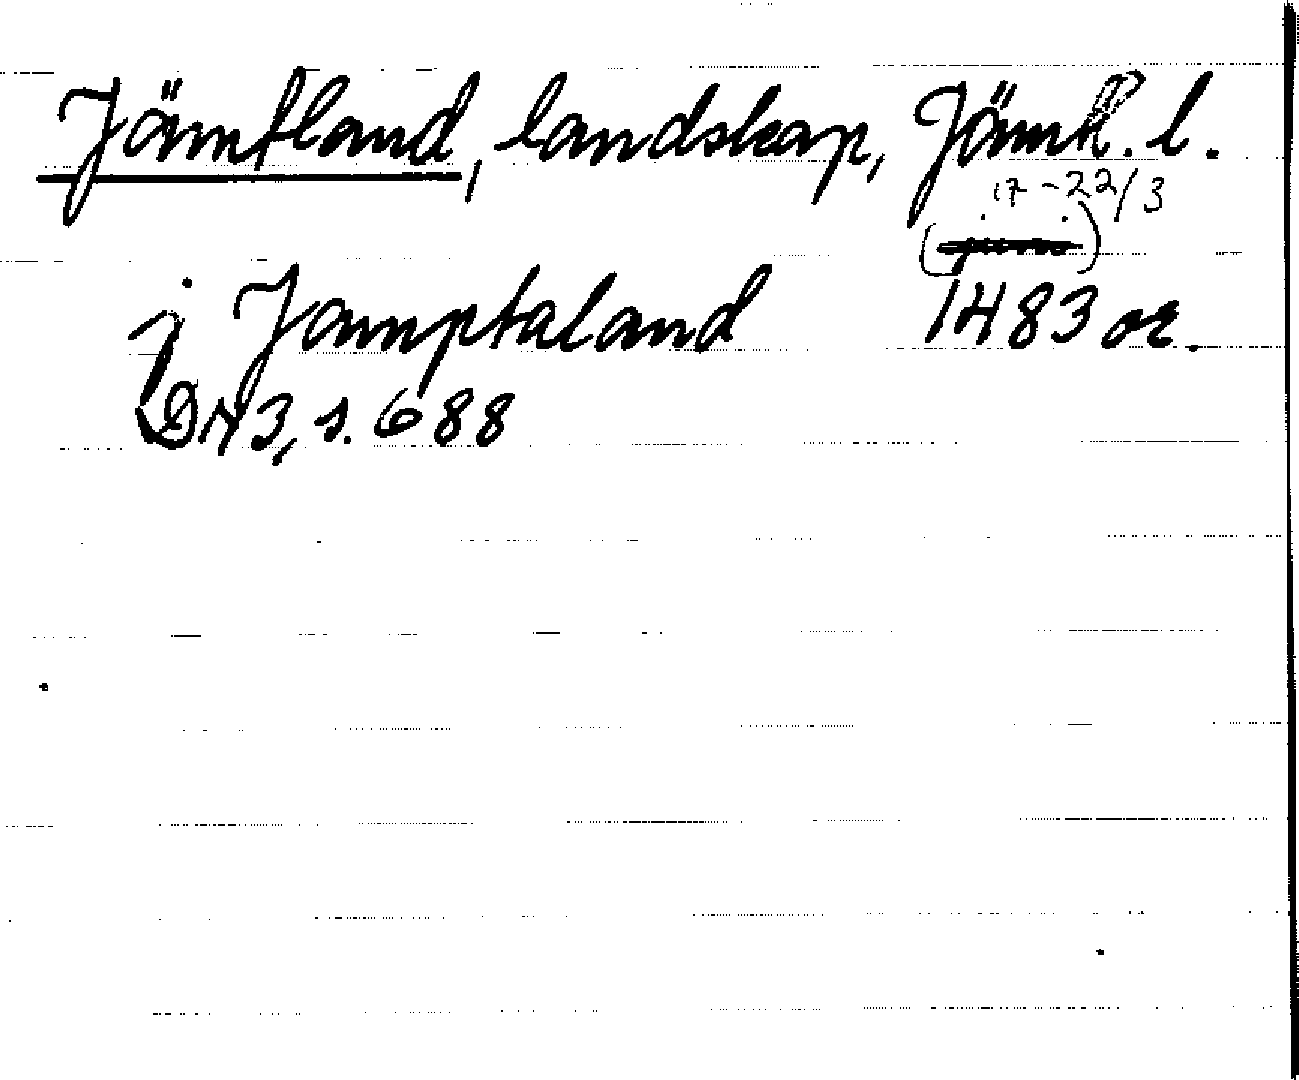 Jämtland, landskap, Jämtl. l.
17-22/3
(juni)
j Jamptaland 1483 or.
DN 3, s. 688